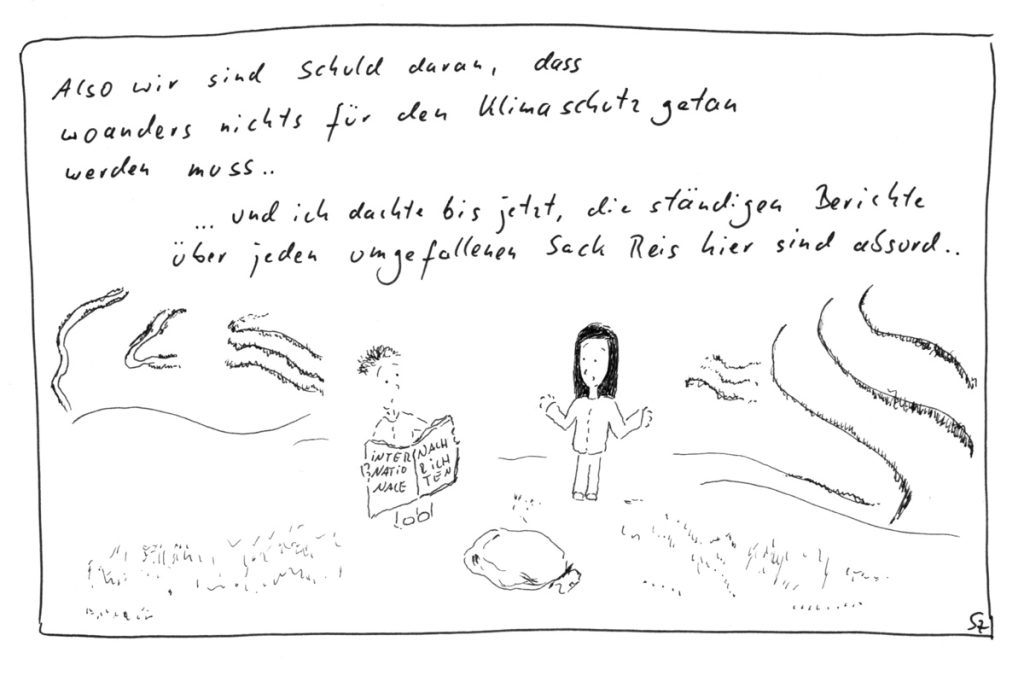 Also wir sind Schuld daran, dass
woanders nichts für den Klimaschutz getan
werden muss..
... und ich dachte bis jetzt, die ständigen Berichte
über jeden umgefallenen Sack Reis hier sind absurd..
INTER
NATIO
NALE
NACH
RICH
TEN
SZ